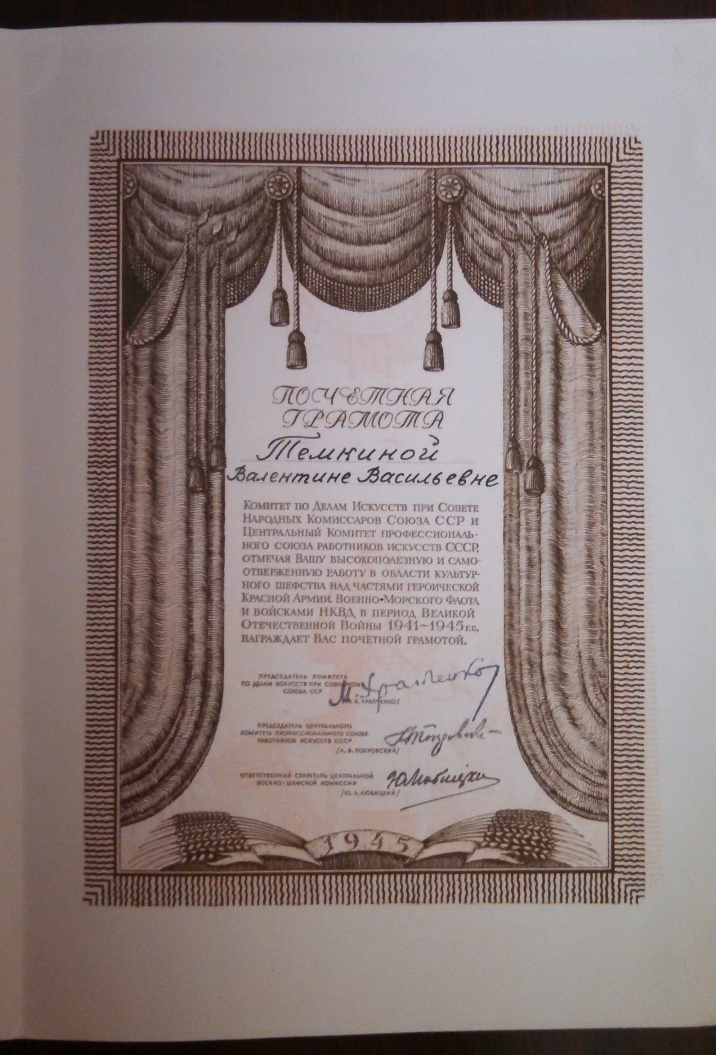 ПОЧЕТНАЯ
ГРАМОТА
Темкиной
Валентине Васильевне
Комитет по Делам Искусств при Совете
Народных Комиссаров Союза ССР и
Центральный Комитет профессиональ-
ного союза работников искусств СССР,
отмечая Вашу высокополезную и само-
отверженную работу в области культур-
ного шефства над частями героической
Красной Армии, Военно-Морского Флота
и войсками НКВД, в период Великой
Отечественной Войны 1941-1945 г.г.,
награждает Вас почетной грамотой.
ПРЕДСЕДАТЕЛЬ КОМИТЕТА
ПО ДЕЛАМ ИСКУССТВ ПРИ СОВНАРКОМЕ
СОЮЗА ССР М. Храпченко
Б. ХРАПЧЕНКО/
ПРЕДСЕДАТЕЛЬ ЦЕНТРАЛЬНОГО
КОМИТЕТА ПРОФЕССИОНАЛЬНОГО СОЮЗА
РАБОТНИКОВ ИСКУССТВ СССР
/А. В. ПОКРОВСКИЙ/
ОТВЕТСТВЕННЫЙ СЕКРЕТАРЬ ЦЕНТРАЛЬНОЙ
ВОЕННО-ШЕФСКОЙ КОМИССИИ
/Ю. Л. ЛЮБИЦКИЙ/
1945